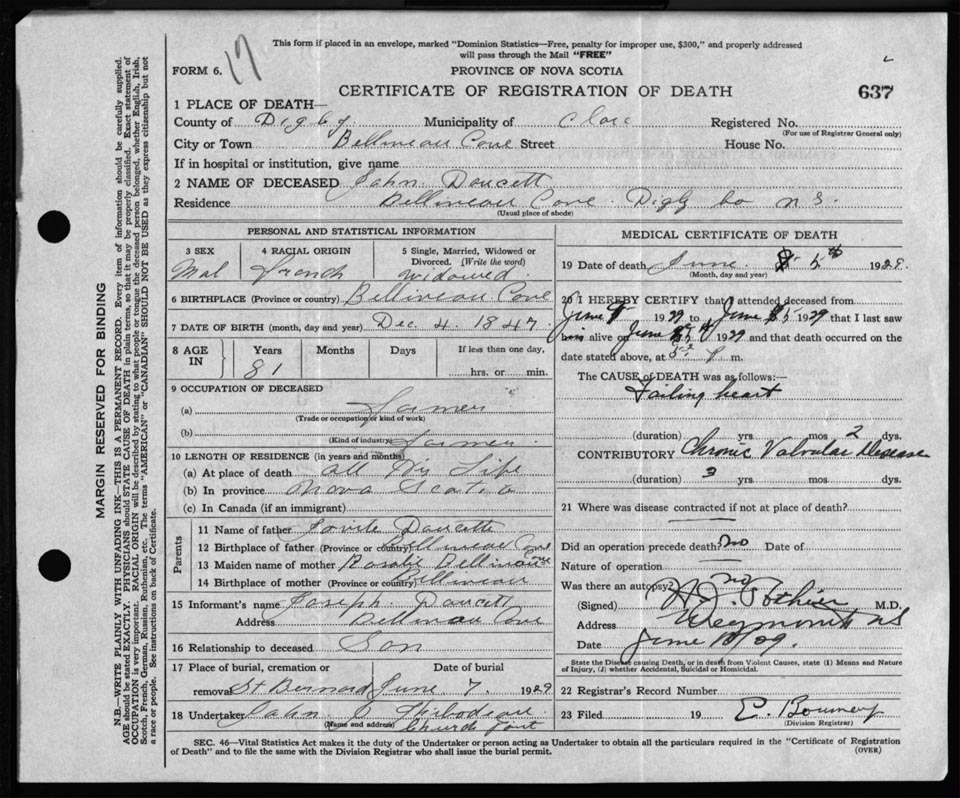 This form if placed in an envelope, marked "Dominion Statistics—Free, penalty for improper use, $300," and properly addressed
will pass through the Mail "FREE"
FORM 6. 17
PROVINCE OF NOVA SCOTIA
CERTIFICATE OF REGISTRATION OF DEATH 637
1 PLACE OF DEATH—
County of Digby Municipality of Clare Registered No.
(For use of Registrar General only)
City or Town Bellineau Cove Street House No.
If in hospital or institution, give name
2 NAME OF DECEASED John Doucett
Residence Bellineau Cove Digby Co N S.
(Usual place of abode)
PERSONAL AND STATISTICAL INFORMATION
3 SEX 4 RACIAL ORIGIN 5 Single, Married, Widowed or
Divorced. (Write the word)
Mal French widowed
6 BIRTHPLACE (Province or country) Bellineau Cove
7 DATE OF BIRTH (month, day and year) Dec. 4. 1847.
8 AGE IN Years Months Days If less than one day,
81 hrs. or min.
9 OCCUPATION OF DECEASED
(a) Farmer
(Trade or occupation or kind of work)
(b) Farmer
(Kind of industry)
10 LENGTH OF RESIDENCE (in years and months)
(a) At place of death all His Life
(b) In province Nova Scotia
(c) In Canada (if an immigrant)
Parents
11 Name of father Doucett
12 Birthplace of father (Province or country) Bellineau Cove
13 Maiden name of mother Rosalie Bellineau
14 Birthplace of mother (Province or country) Bellineau Cove
15 Informant's name Joseph Doucett
Address Bellineau Cove
16 Relationship to deceased Son
17 Place of burial, cremation or Date of burial
removal St Bernard June 7. 1929
18 Undertaker John Thibodeau
(Name and address) Church Point
MEDICAL CERTIFICATE OF DEATH
19 Date of death June 5th 1929.
(Month, day and year)
20 I HEREBY CERTIFY that I attended deceased from
June 1929 to June 5 1929 that I last saw
him alive on June 1929 and that death occurred on the
date stated above, at P m.
The CAUSE of DEATH was as follows:—
Failing heart
(duration) yrs. mos 2 dys.
CONTRIBUTORY Chronic Valvular Disease
(duration) 3 yrs. mos dys.
21 Where was disease contracted if not at place of death?
Did an operation precede death? no Date of
Nature of operation
Was there an autopsy? no
(Signed) Pothier M.D.
Address Weymouth NS
Date June 29.
State the Disease causing Death, or in death from Violent Causes, state (1) Means and Nature
of Injury, (2) whether Accidental, Suicidal or Homicidal.
22 Registrar's Record Number
23 Filed 19
(Division Registrar)
SEC. 46—Vital Statistics Act makes it the duty of the Undertaker or person acting as Undertaker to obtain all the particulars required in the "Certificate of Registration
of Death" and to file the same with the Division Registrar who shall issue the burial permit. (OVER)
MARGIN RESERVED FOR BINDING
N.B.—WRITE PLAINLY WITH UNFADING INK—THIS IS A PERMANENT RECORD. Every item of information should be carefully supplied.
AGE should be stated EXACTLY. PHYSICIANS should STATE CAUSE OF DEATH in plain terms, so that it may be properly classified. Exact statement of
OCCUPATION is very important. RACIAL ORIGIN will be described by stating to what people or tongue the deceased person belonged, whether English, Irish,
Scotch, French, German, Russian, Ruthenian, etc. The terms "AMERICAN" or "CANADIAN" SHOULD NOT BE USED as they express citizenship but not
a race or people. See instructions on back of Certificate.